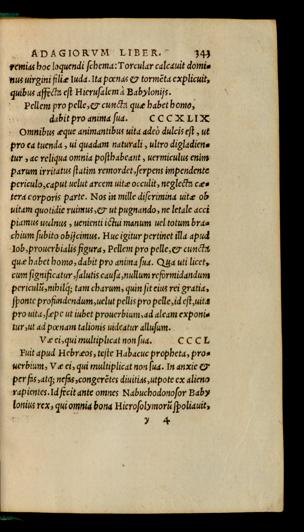 ADAGIORVM LIBER. 343
remias hoc loquendi schema: Torcular calcauit domi-
nus uirgini filiæ Iuda. Ita pœnas & tormẽta explicuit,
quibus affecta est Hierusalem à Babylonijs.
Pellem pro pelle, & cuncta quæ habet homo,
dabit pro anima sua. CCCXLIX
Omnibus æque animantibus uita adeò dulcis est, ut
pro ea tuenda, ui quadam naturali, ultro digladien-
tur, ac reliqua omnia posthabeant, uermiculus enim
parum irritatus statim remordet, serpens impendente
periculo, caput uelut arcem uitæ occulit, neglecta cæ-
tera corporis parte. Nos in mille discrimina uitæ ob
uitam quotidie ruimus, & ut pugnando, ne letale acci
piamus uulnus, uenienti ictui manum uel totum bra-
chium subito obijcimus. Huc igitur pertinet illa apud
Iob, prouerbialis figura, Pellem pro pelle, & cuncta
quæ habet homo, dabit pro anima sua. Qua uti licet,
cum significatur, salutis causa, nullum reformidandum
periculũ, nihilq; tam charum, quin sit eius rei gratia,
sponte profundendum, uelut pellis pro pelle, id est, uita
pro uita, sæpe ut iubet prouerbium, ad aleam exponi-
tur, ut ad pœnam talionis uideatur allusum.
Væ ei, qui multiplicat non sua. CCCL
Fuit apud Hebræos, teste Habacuc propheta, pro-
uerbium, Væ ei, qui multiplicat non sua. In anxie &
per fas, atq; nefas, congerẽtes diuitias, utpote ex alieno
rapientes. Id fecit ante omnes Nabuchodonosor Baby
lonius rex, qui omnia bona Hierosolymorũ spoliauit,
y 4